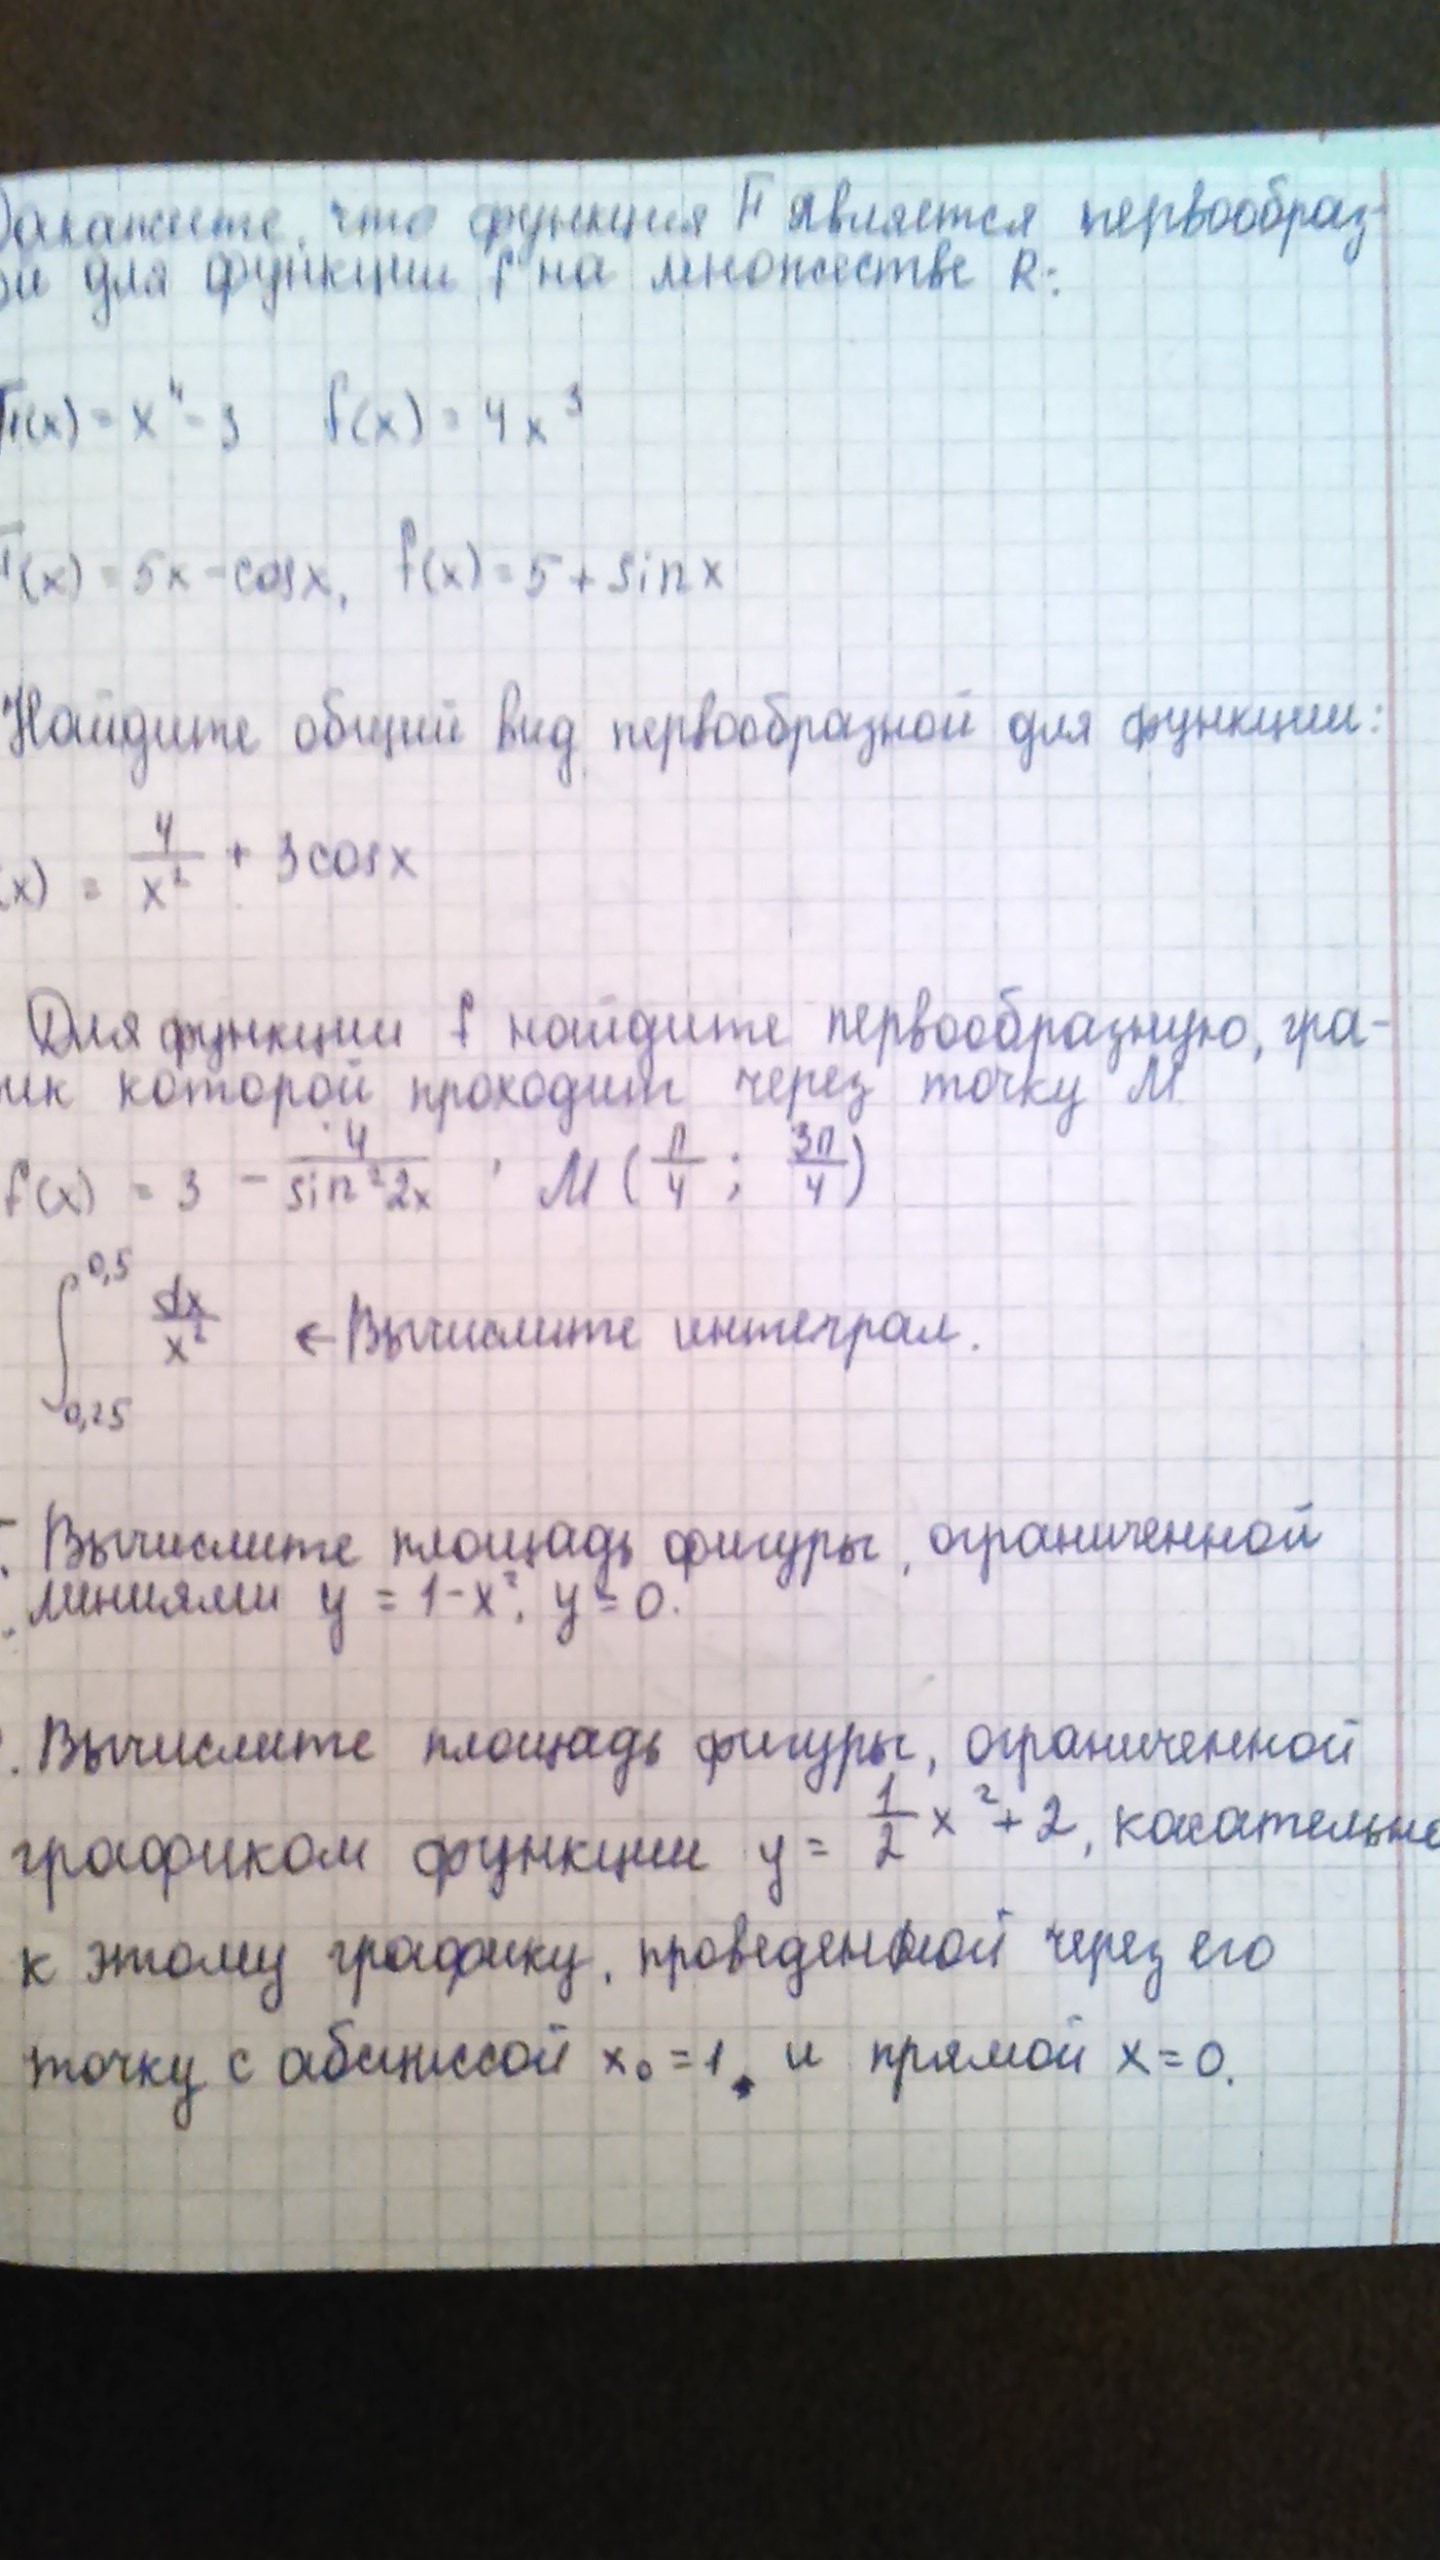 Докажите, что функция F является первообраз-
ой для функции f на множестве R:
F(x) = x⁴ - 3 f(x) = 4x³
F(x) = 5x - cosx, f(x) = 5 + sinx
Найдите общий вид первообразной для функции:
(x) = 4/x² + 3cosx
Для функции f найдите первообразную, гра-
ик которой проходит через точку M
f(x) = 3 - 4/sin²2x , M (п/4 ; 3п/4)
∫₀,₂₅^0,5 dx/x² ← Вычислите интеграл.
. Вычислите площадь фигуры, ограниченной
линиями y = 1-x², y = 0.
. Вычислите площадь фигуры, ограниченной
графиком функции y = 1/2 x² + 2, касательно
к этому графику, проведенной через его
точку с абсциссой x₀ = 1, и прямой x = 0.